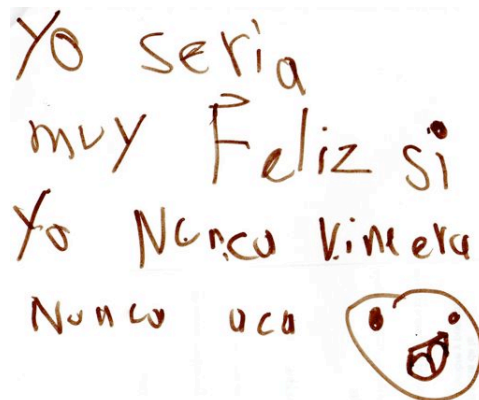 Yo seria
muy Feliz si
Yo Nunca vinera
Nunca aca